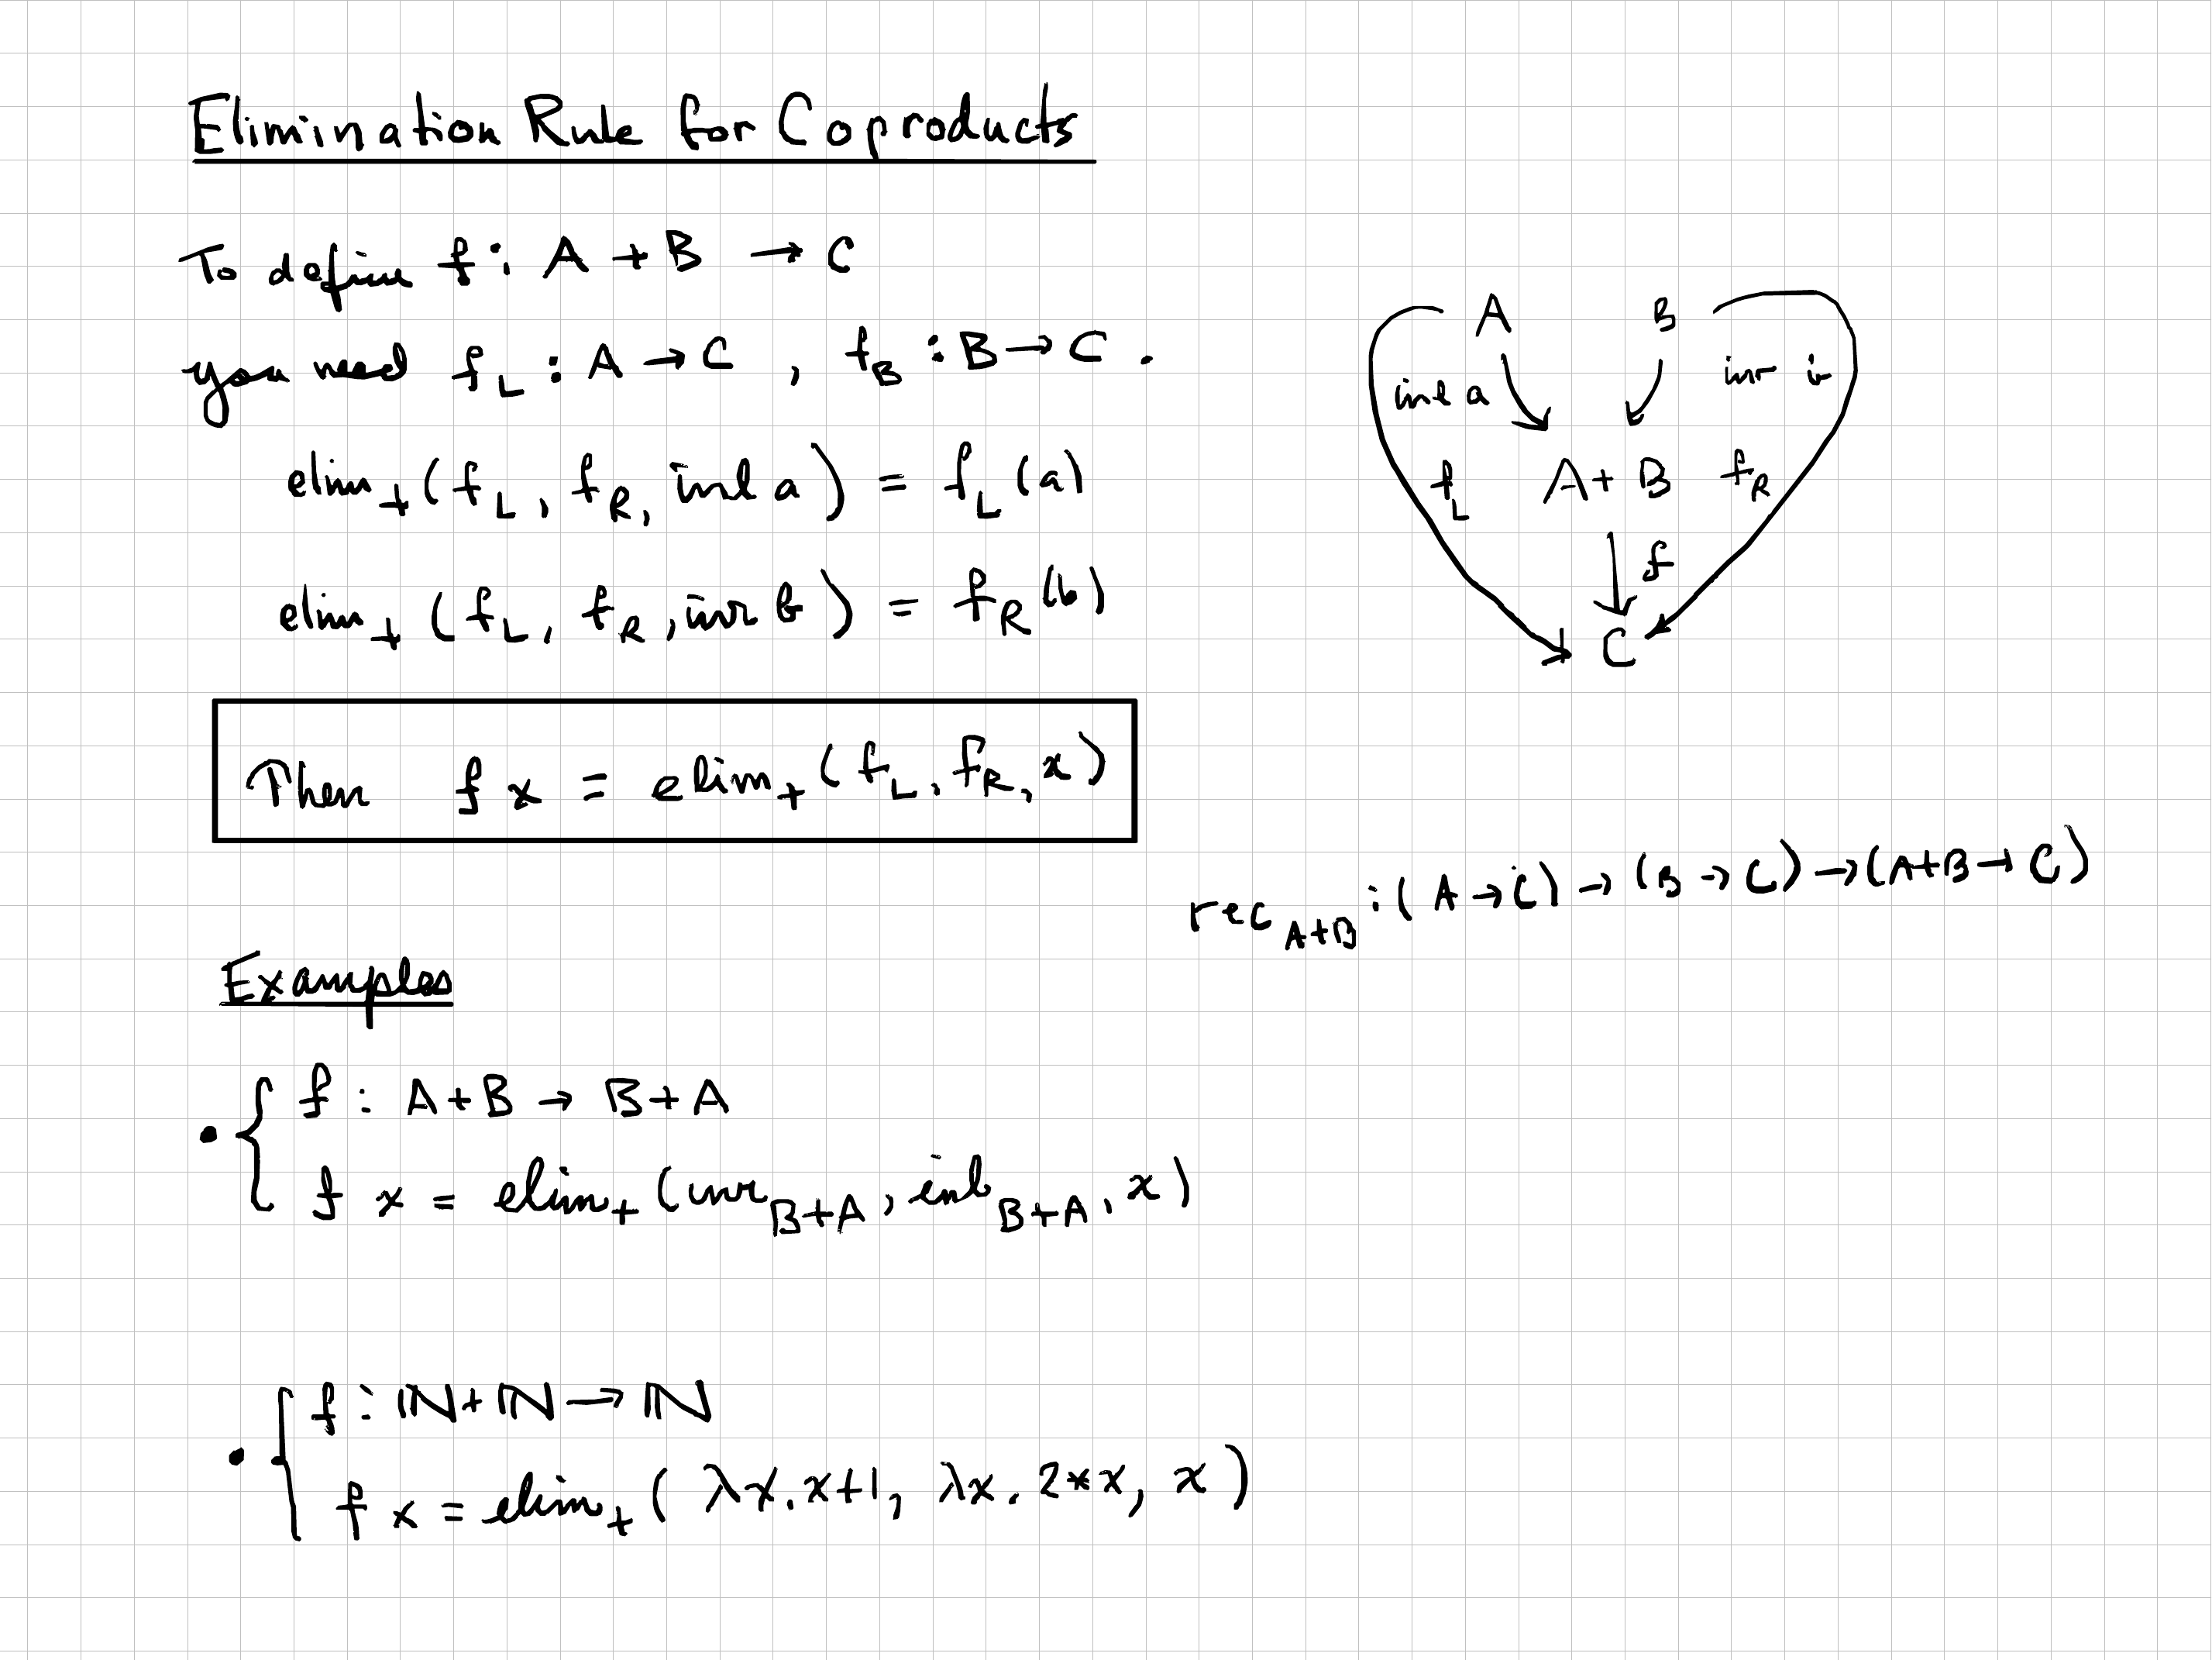 Elimination Rule for Coproducts
To define f : A + B → C
you need f_L : A → C , f_B : B → C .
elim_+ (f_L, f_R, inl a) = f_L (a)
elim_+ (f_L, f_R, inr b) = f_R (b)
Then f x = elim_+ (f_L, f_R, x)
A B
inl a inr b
f_L A + B f_R
f
C
rec_{A+B} : (A → C) → (B → C) → (A+B → C)
Examples
• { f : A+B → B+A
f x = elim_+ (inr_{B+A}, inl_{B+A}, x)
• { f : ℕ + ℕ → ℕ
f x = elim_+ ( λx. x+1, λx. 2*x, x )